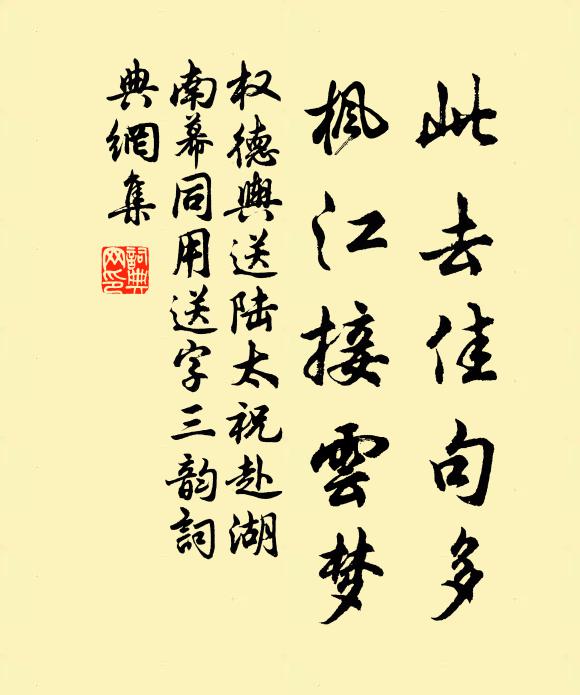 此去佳句多
枫江接雲梦
权德輿送陆太祝赴湖
南幕同用送字三韵詞
典網集
詞典
网印